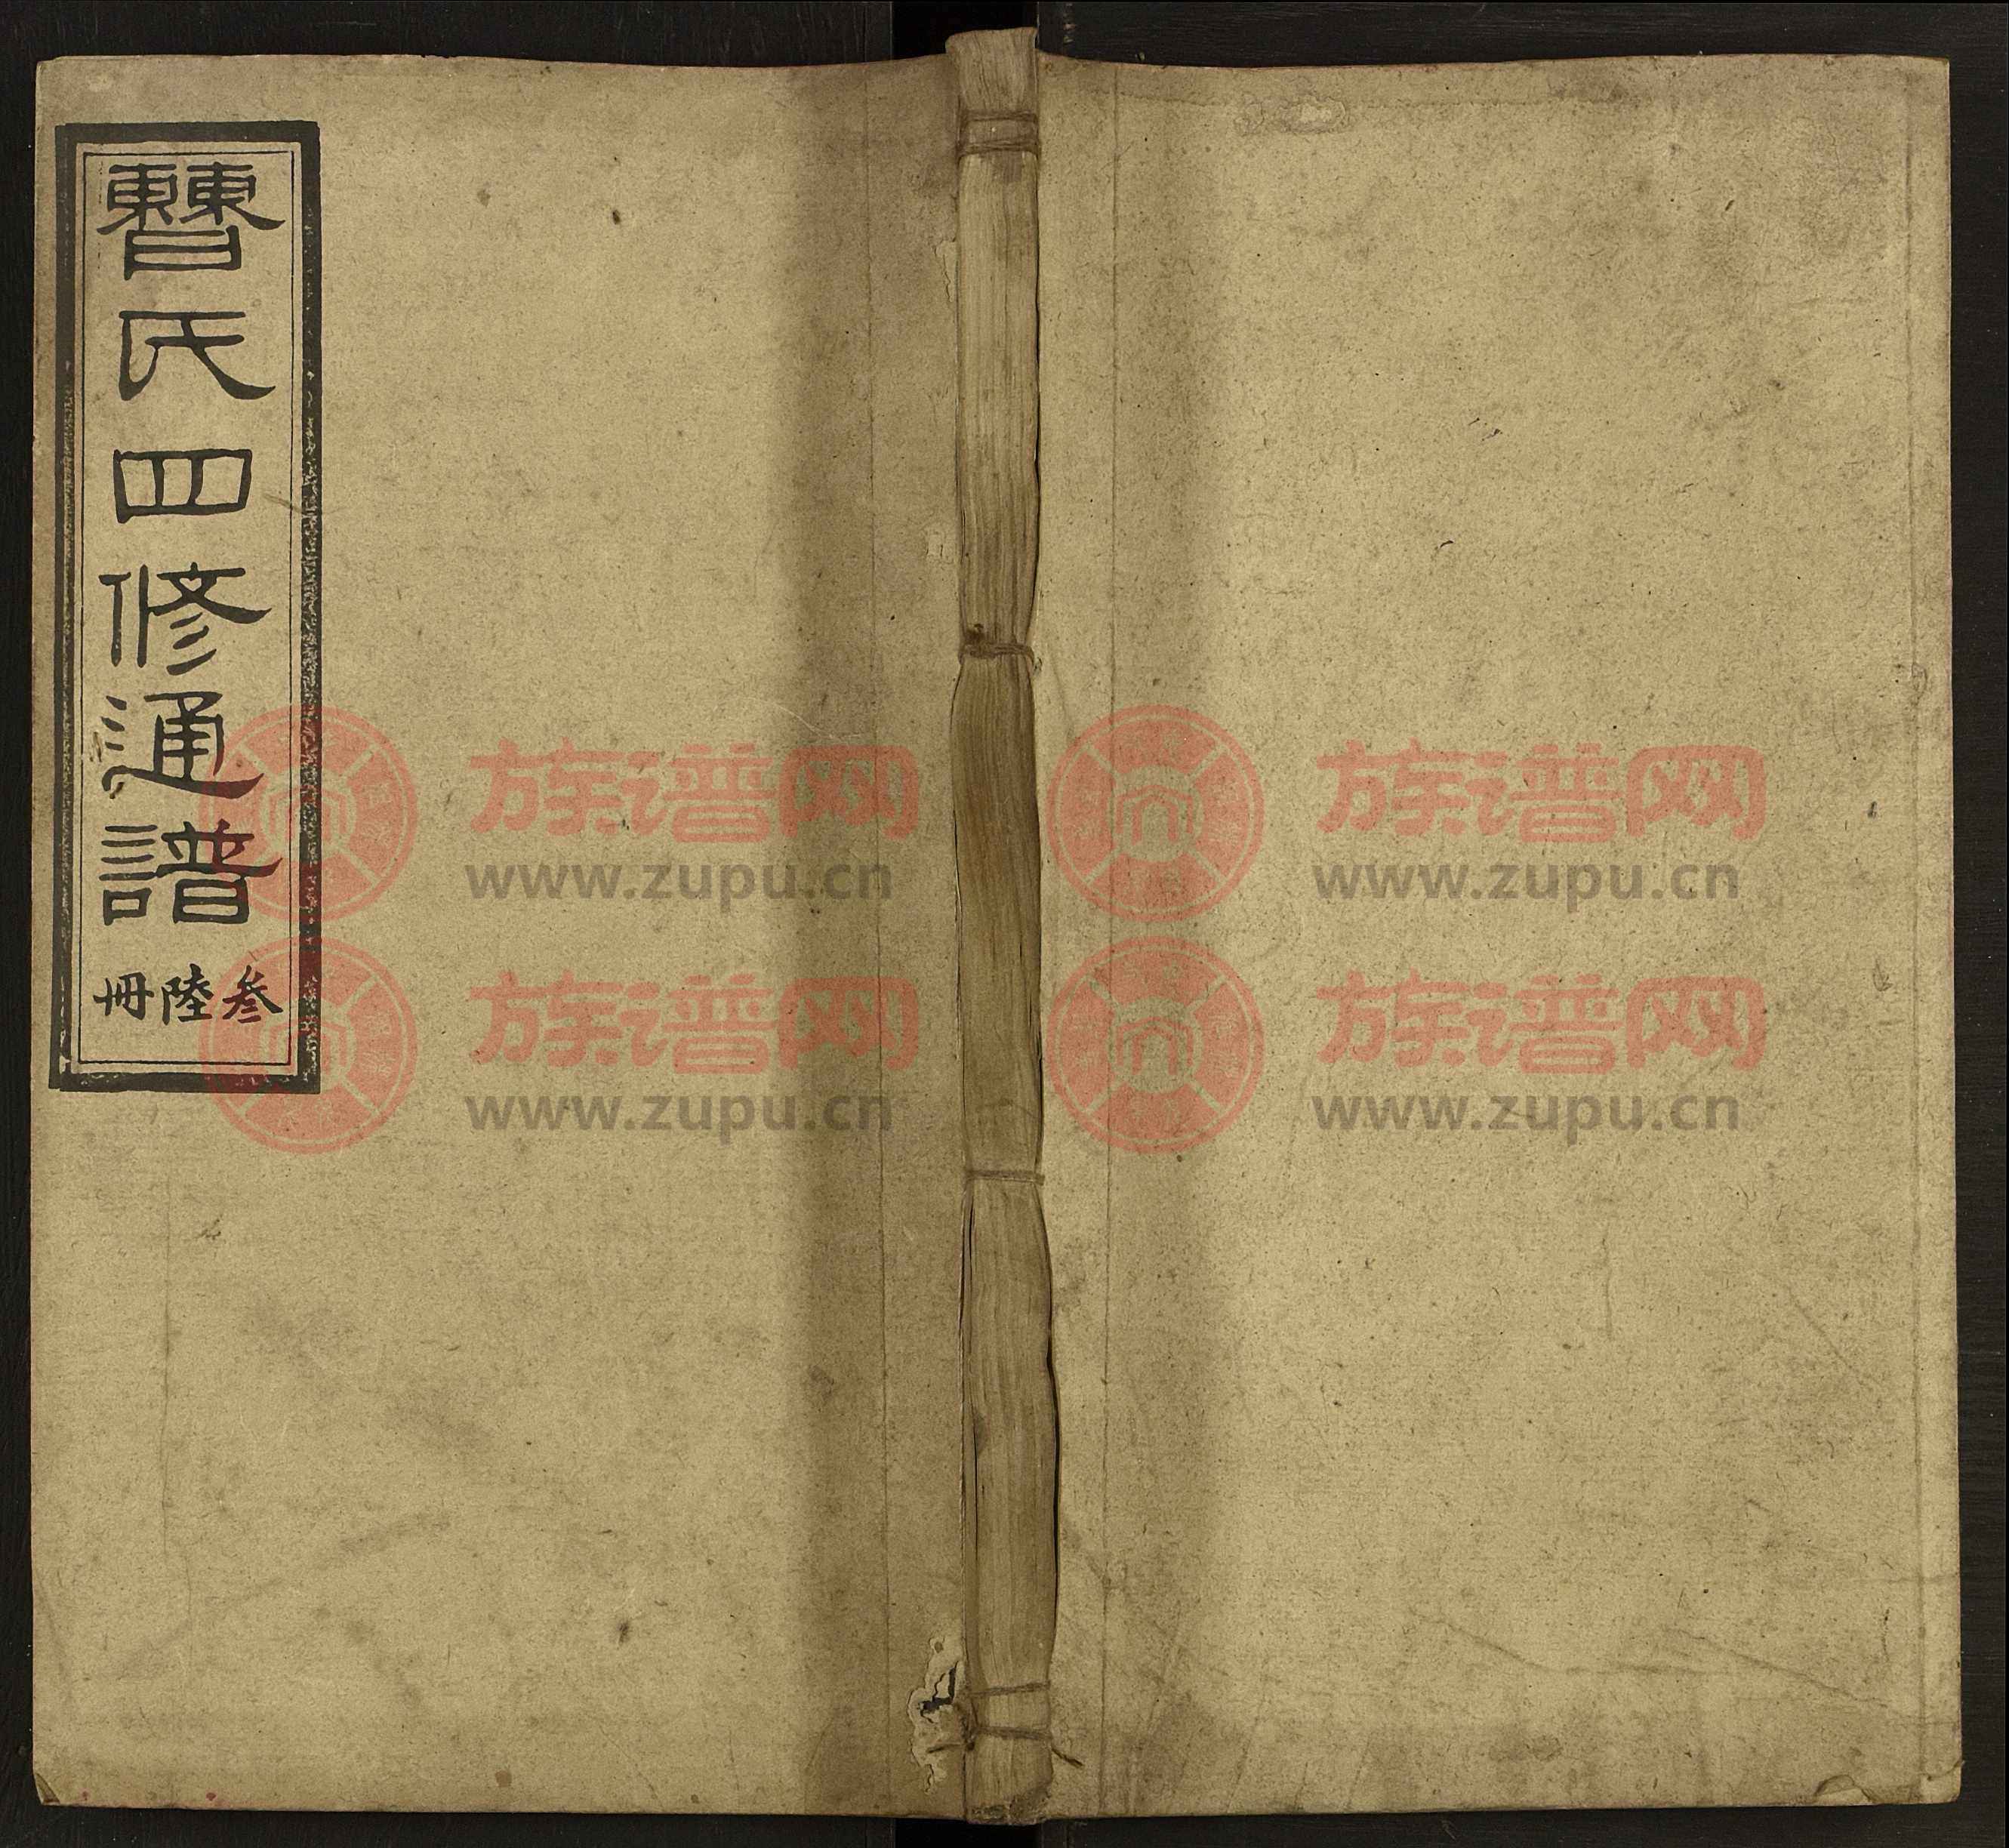 曹氏四修通譜
叁陸冊
族谱网
www.zupu.cn
族谱网
www.zupu.cn
族谱网
www.zupu.cn
族谱网
www.zupu.cn